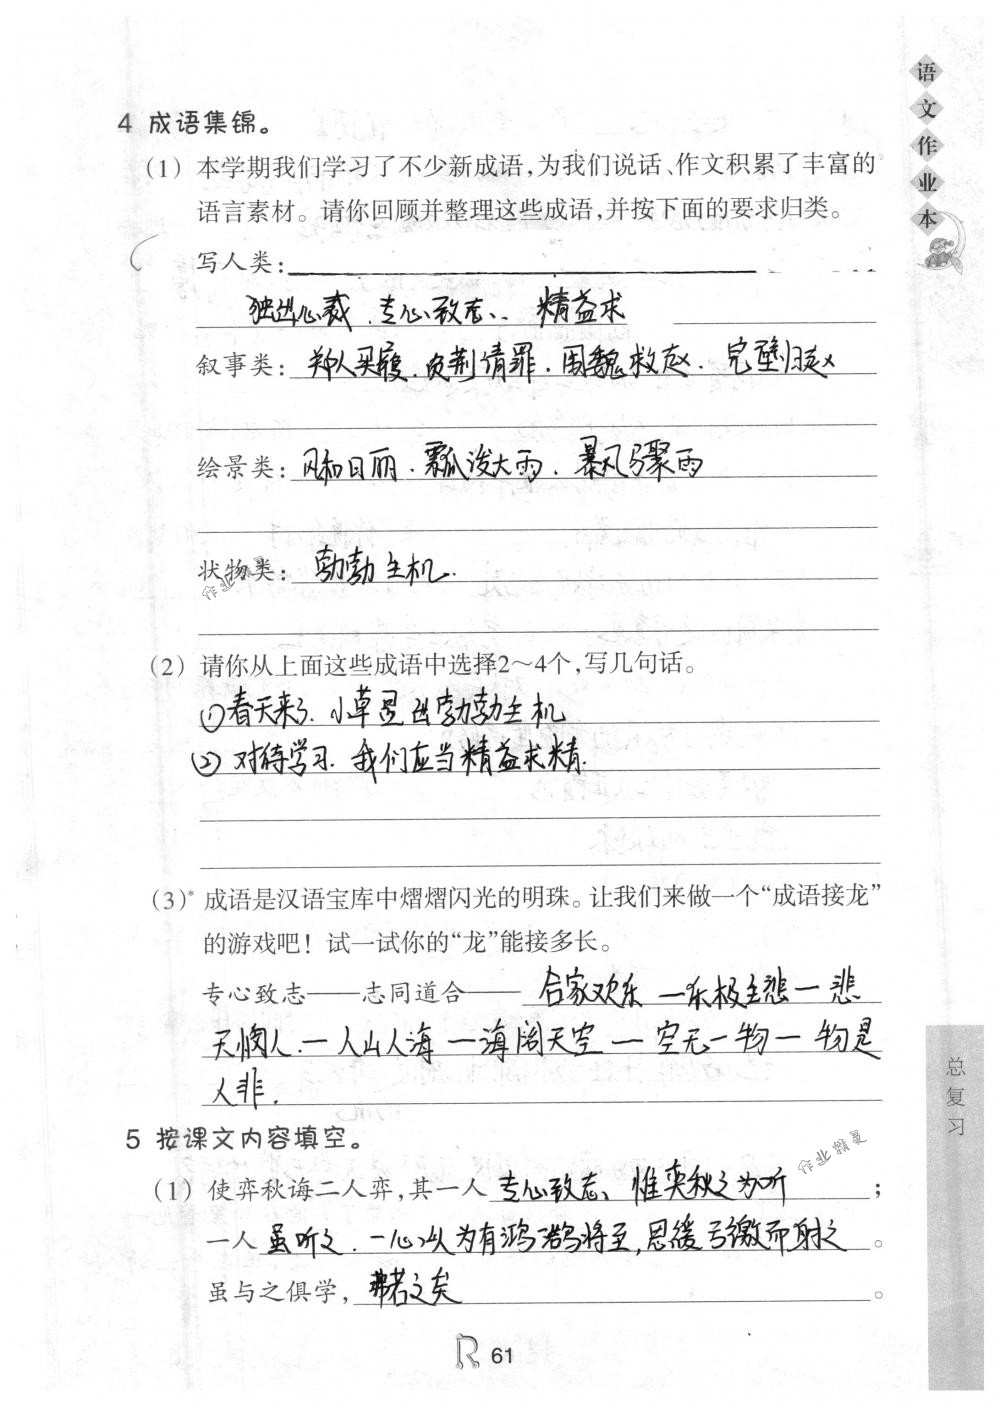 语文作业本
4 成语集锦。
(1) 本学期我们学习了不少新成语,为我们说话、作文积累了丰富的
语言素材。请你回顾并整理这些成语,并按下面的要求归类。
写人类:
独出心裁、专心致志、精益求
叙事类: 郑人买履、负荆请罪、围魏救赵、完璧归赵
绘景类: 风和日丽、瓢泼大雨、暴风骤雨
状物类: 勃勃生机.
作业精灵
(2) 请你从上面这些成语中选择2～4个,写几句话。
① 春天来了.小草显出勃勃生机
② 对待学习.我们应当精益求精.
(3)* 成语是汉语宝库中熠熠闪光的明珠。让我们来做一个“成语接龙”
的游戏吧！试一试你的“龙”能接多长。
专心致志——志同道合—— 合家欢乐—乐极生悲—悲
天悯人.—人山人海—海阔天空—空无一物—物是
人非.
5 按课文内容填空。
作业精灵
(1) 使弈秋诲二人弈,其一人 专心致志、惟奕秋之为听 ;
一人 虽听之.一心以为有鸿鹄将至,思援弓缴而射之 。
虽与之俱学, 弗若之矣 。
总复习
R 61